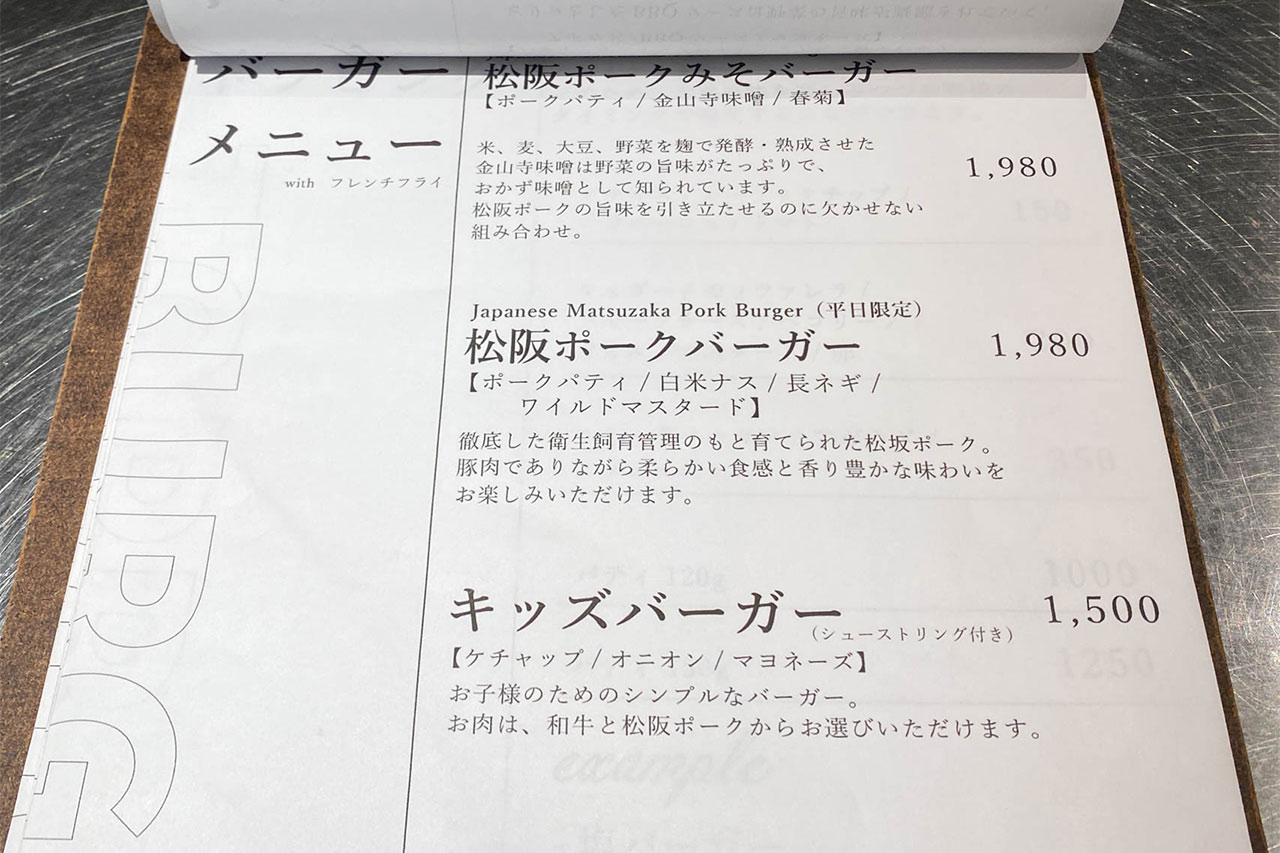 バーガー
メニュー
with フレンチフライ
松阪ポークみそバーガー
【ポークパティ / 金山寺味噌 / 春菊】
米、麦、大豆、野菜を麹で発酵・熟成させた
金山寺味噌は野菜の旨味がたっぷりで、
おかず味噌として知られています。
松阪ポークの旨味を引き立たせるのに欠かせない
組み合わせ。
1,980
Japanese Matsuzaka Pork Burger（平日限定）
松阪ポークバーガー
1,980
【ポークパティ / 白米ナス / 長ネギ /
ワイルドマスタード】
徹底した衛生飼育管理のもと育てられた松坂ポーク。
豚肉でありながら柔らかい食感と香り豊かな味わいを
お楽しみいただけます。
キッズバーガー
（シューストリング付き）
1,500
【ケチャップ / オニオン / マヨネーズ】
お子様のためのシンプルなバーガー。
お肉は、和牛と松阪ポークからお選びいただけます。
150
350
パティ 120g
1000
1250
example